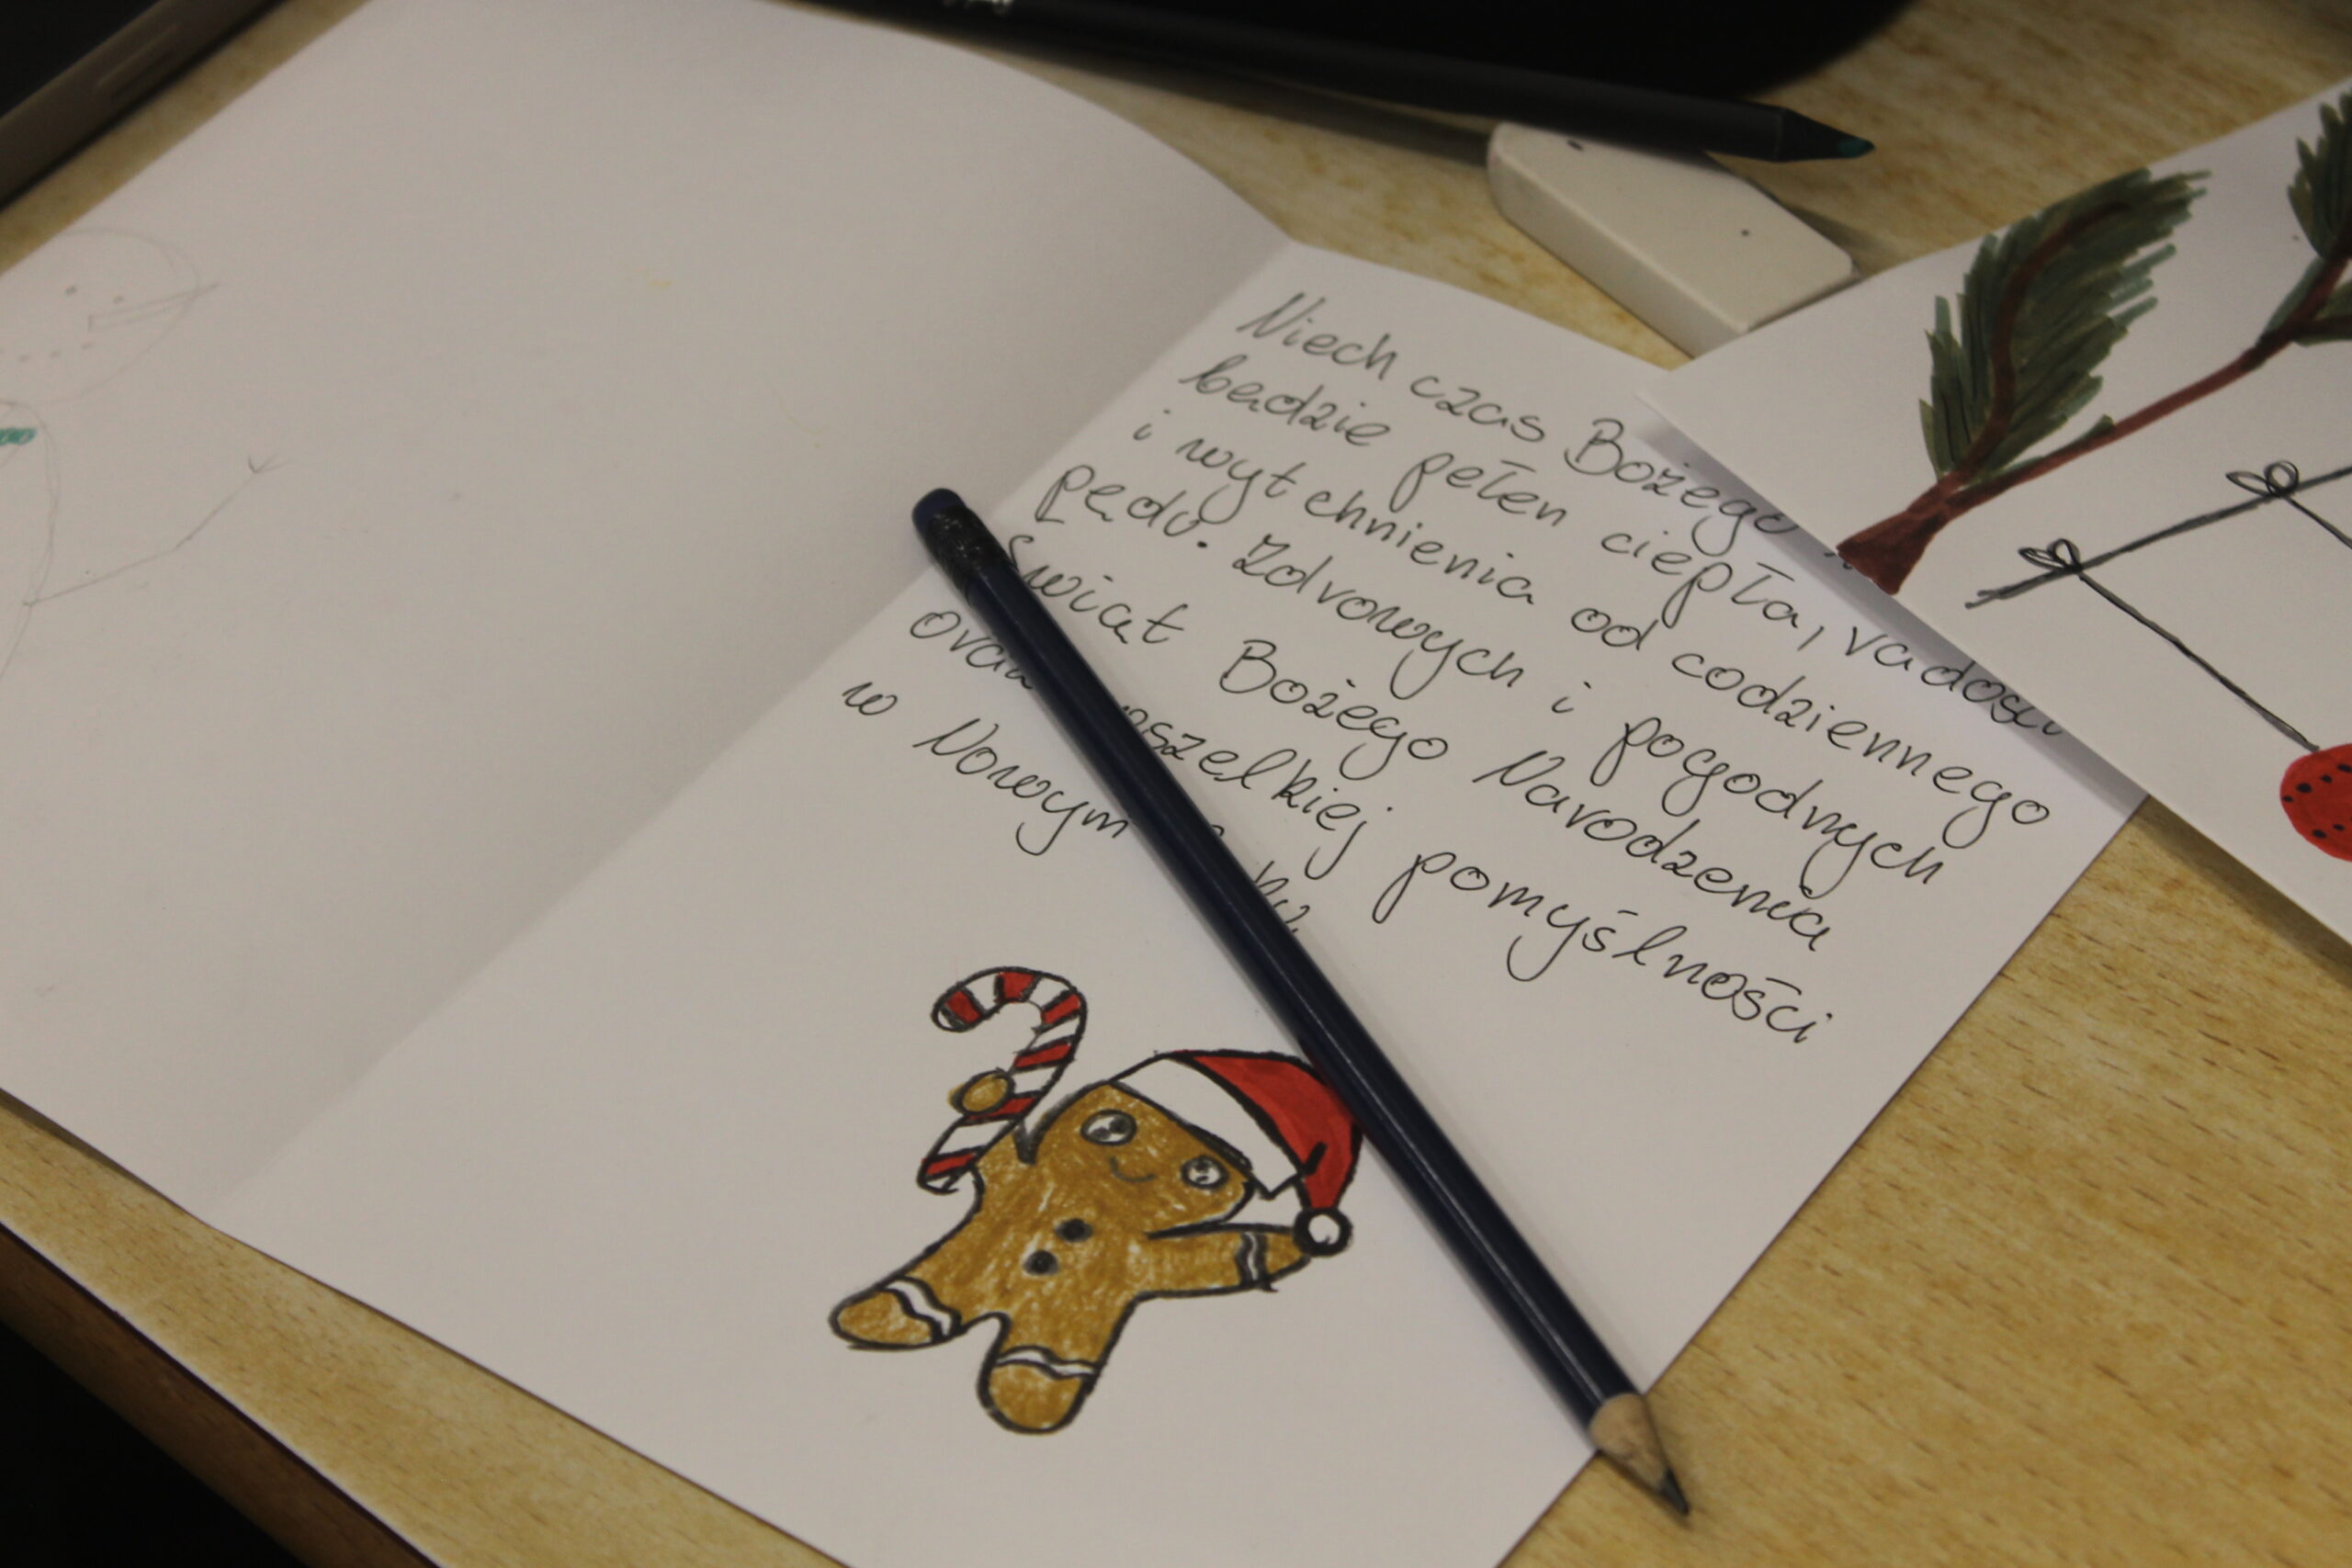 Niech czas Bożego
będzie pełen ciepła, radości
i wytchnienia od codziennego
pędu. Zdrowych i pogodnych
Świąt Bożego Narodzenia
oraz wszelkiej pomyślności
w Nowym